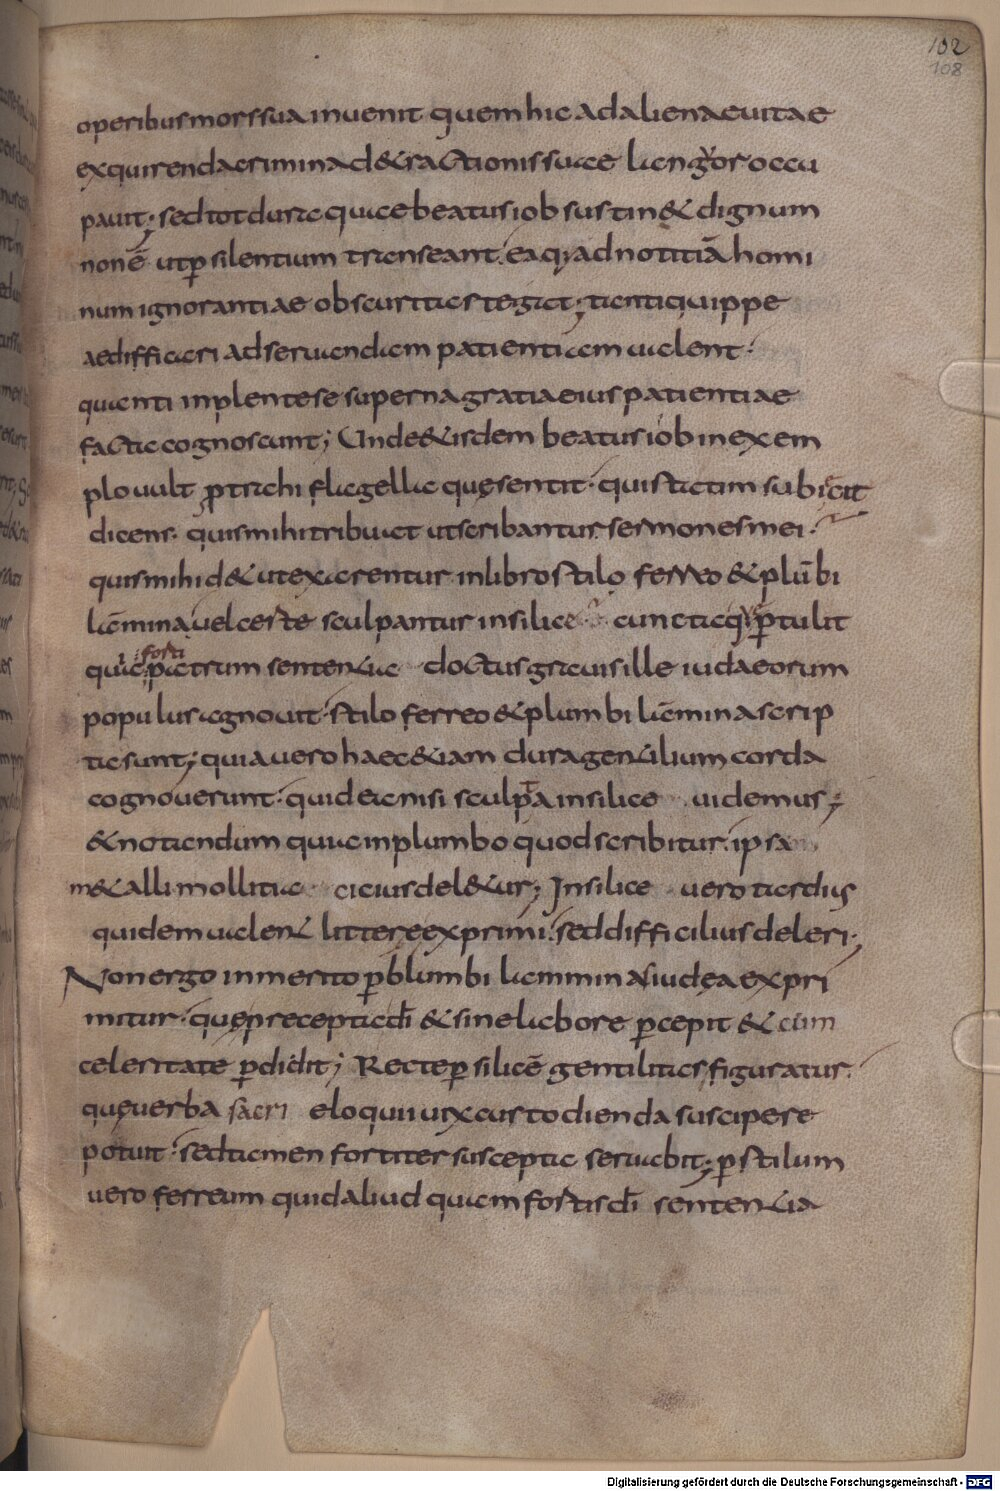 102
108
operibus mors sua inuenit quem hic ad alienae uitae
exquirenda crimina d&ractionis suae liuor occu
pauit; sed tot dura quae beatus iob sustin& dignum
non ē ut ꝑ silentium transeant. eaq; ad notitiā homi
num ignorantiae obscuritas tegat; tanti quippe
aedifficari ad seruandam patientiam ualent.
quanti inplente se superna gratia eius patientiae
facta cognoscunt; Unde & isdem beatus iob in exem
plo uult ꝓtrahi flagella quę sentit. qui statim subiecit
dicens. quis mihi tribuat ut scribantur sermones mei.
quis mihi d& ut exarentur in libro stilo ferreo & plūbi
lāmina uel certe sculpantur in silice cuncta q; ꝑtulit
quia forti patrum sententia doctus grauis ille iudaeorum
populus agnouit. stilo ferreo & plumbi lāmina scrip
ta sunt; quia uero haec &iam dura gentilium corda
cognouerunt. quid ea nisi sculpta in silice uidemus;
& notandum quia in plumbo quod scribitur. ipsa
m&alli mollitia citius del&ur; In silice uero tardius
quidem ualent litterę exprimi. sed difficilius deleri.
Non ergo inmerito ꝑ blumbi lammina iudęa expri
mitur. quę precepta dī & sine labore ꝑcepit & cum
celeritate ꝑdidit; Recte ꝑ silicē gentilitas figuratur.
quę uerba sacri eloquii uix custodienda suscipere
potuit. sed tamen fortiter suscepta seruabit; ꝑ stilum
uero ferreum quid aliud quam fortis dī sententia
Digitalisierung gefördert durch die Deutsche Forschungsgemeinschaft - DFG